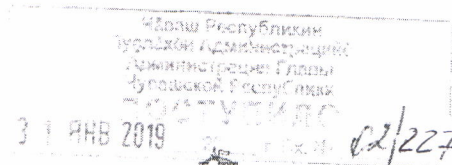 Чӑваш Республикин
Администрацийӗ
Администрация Главы
Чувашской Республики
ПОСТУПИЛО
31 ЯНВ 2019 Вх. № 02/227